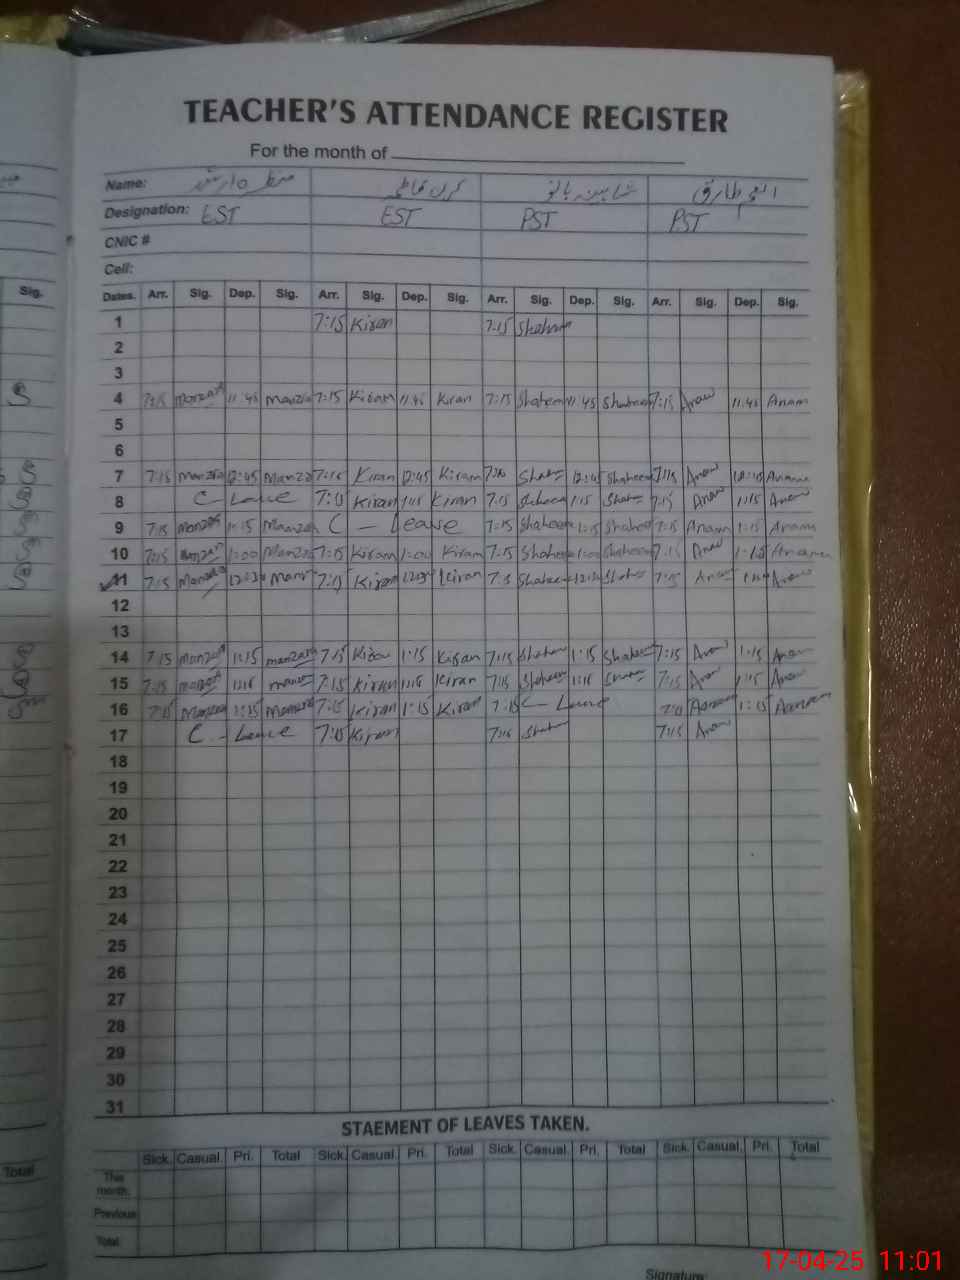 TEACHER'S ATTENDANCE REGISTER
For the month of
Name: کرن فاطمہ شاہینہ بانو انعم طارق
Designation: EST EST PST PST
CNIC #
Cell:
Sig. Dates. Arr. Sig. Dep. Sig. Arr. Sig. Dep. Sig. Arr. Sig. Dep. Sig. Arr. Sig. Dep. Sig.
1 7:15 Kiran 7:15 Shaheen
2
3
4 7:15 Manzar 11:45 Manzar 7:15 Kiran 11:45 Kiran 7:15 Shaheen 11:45 Shaheen 7:15 Anam 11:45 Anam
5
6
7 7:15 Manzar 12:45 Manzar 7:15 Kiran 12:45 Kiram Shaheen 12:45 Shaheen 7:15 Anam 12:45 Anam
8 C - Leave 7:15 Kiran 1:15 Kiran 7:15 Shaheen 1:15 Shaheen 7:15 Anam 1:15 Anam
9 7:15 Manzar 1:15 Manzar C - Leave 7:15 Shaheen 1:15 Shaheen 7:15 Anam 1:15 Anam
10 7:15 Manzar 1:00 Manzar 7:15 Kiram 1:00 Kiram 7:15 Shaheen 1:00 Shaheen 7:15 Anam 1:15 Anam
11 7:15 Manzar 12:30 Manzar 7:15 Kiran 12:30 Kiran Shaheen 12:30 Shaheen 7:15 Anam Anam
12
13
14 7:15 Manzar 1:15 Manzar 7:15 Kiran 1:15 Kiran 7:15 Shaheen 1:15 Shaheen 7:15 Anam 1:15 Anam
15 7:15 Manzar 1:15 Manzar 7:15 Kiran 1:15 Kiran 7:15 Shaheen 1:15 Shaheen 7:15 Anam 1:15 Anam
16 7:15 Manzar 1:15 Manzar 7:15 Kiran 1:15 Kiran 7:15 C - Leave 7:15 Anam 1:15 Anam
17 C - Leave 7:15 Kiran 7:15 Shaheen 7:15 Anam
18
19
20
21
22
23
24
25
26
27
28
29
30
31
STAEMENT OF LEAVES TAKEN.
Total Sick. Casual. Pri. Total Sick. Casual. Pri. Total Sick. Casual. Pri. Total Sick. Casual. Pri. Total
This month.
Previous
Total
Signature:
17-04-25 11:01